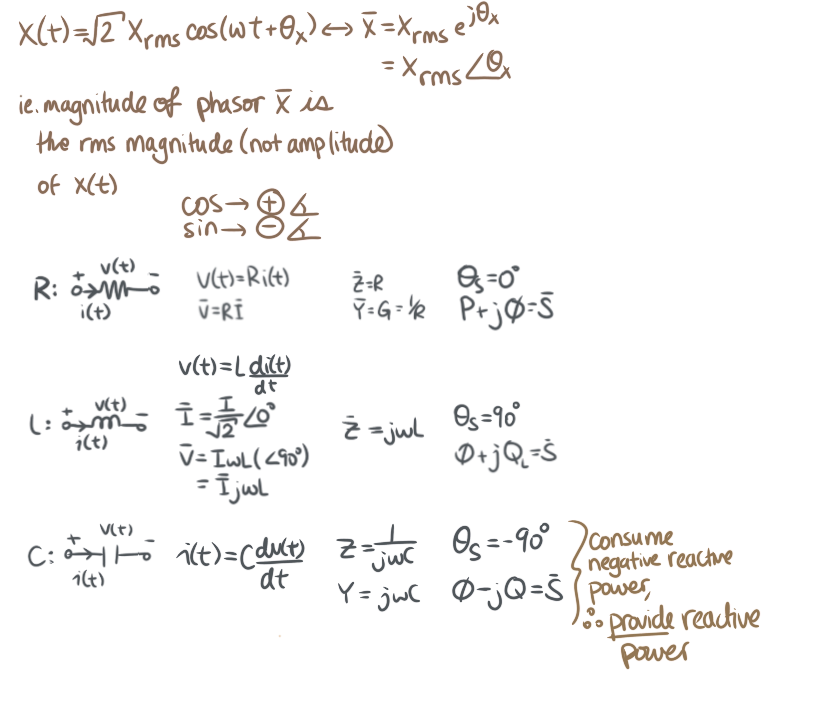 x(t)=√2 Xrms cos(ωt+θx) ↔ x̄ = Xrms e^jθx
= Xrms ∠θx
ie. magnitude of phasor x̄ is
the rms magnitude (not amplitude)
of x(t)
cos → ⊕ ∡
sin → ⊖ ∡
R: + v(t) - i(t)
v(t)=Ri(t)
V̄=RĪ
Z̄=R
Ȳ=G=1/R
θs=0°
P+jØ=S̄
L: + v(t) - i(t)
v(t)=L di(t)/dt
Ī = I/√2 ∠0°
V̄= IωL(∠90°)
= ĪjωL
Z̄ =jωL
θs=90°
Ø+jQL=S̄
C: + v(t) - i(t)
i(t)=C dv(t)/dt
Z=1/jωC
Y=jωC
θs=-90°
Ø-jQ=S̄
consume
negative reactive
power,
∴ provide reactive
power